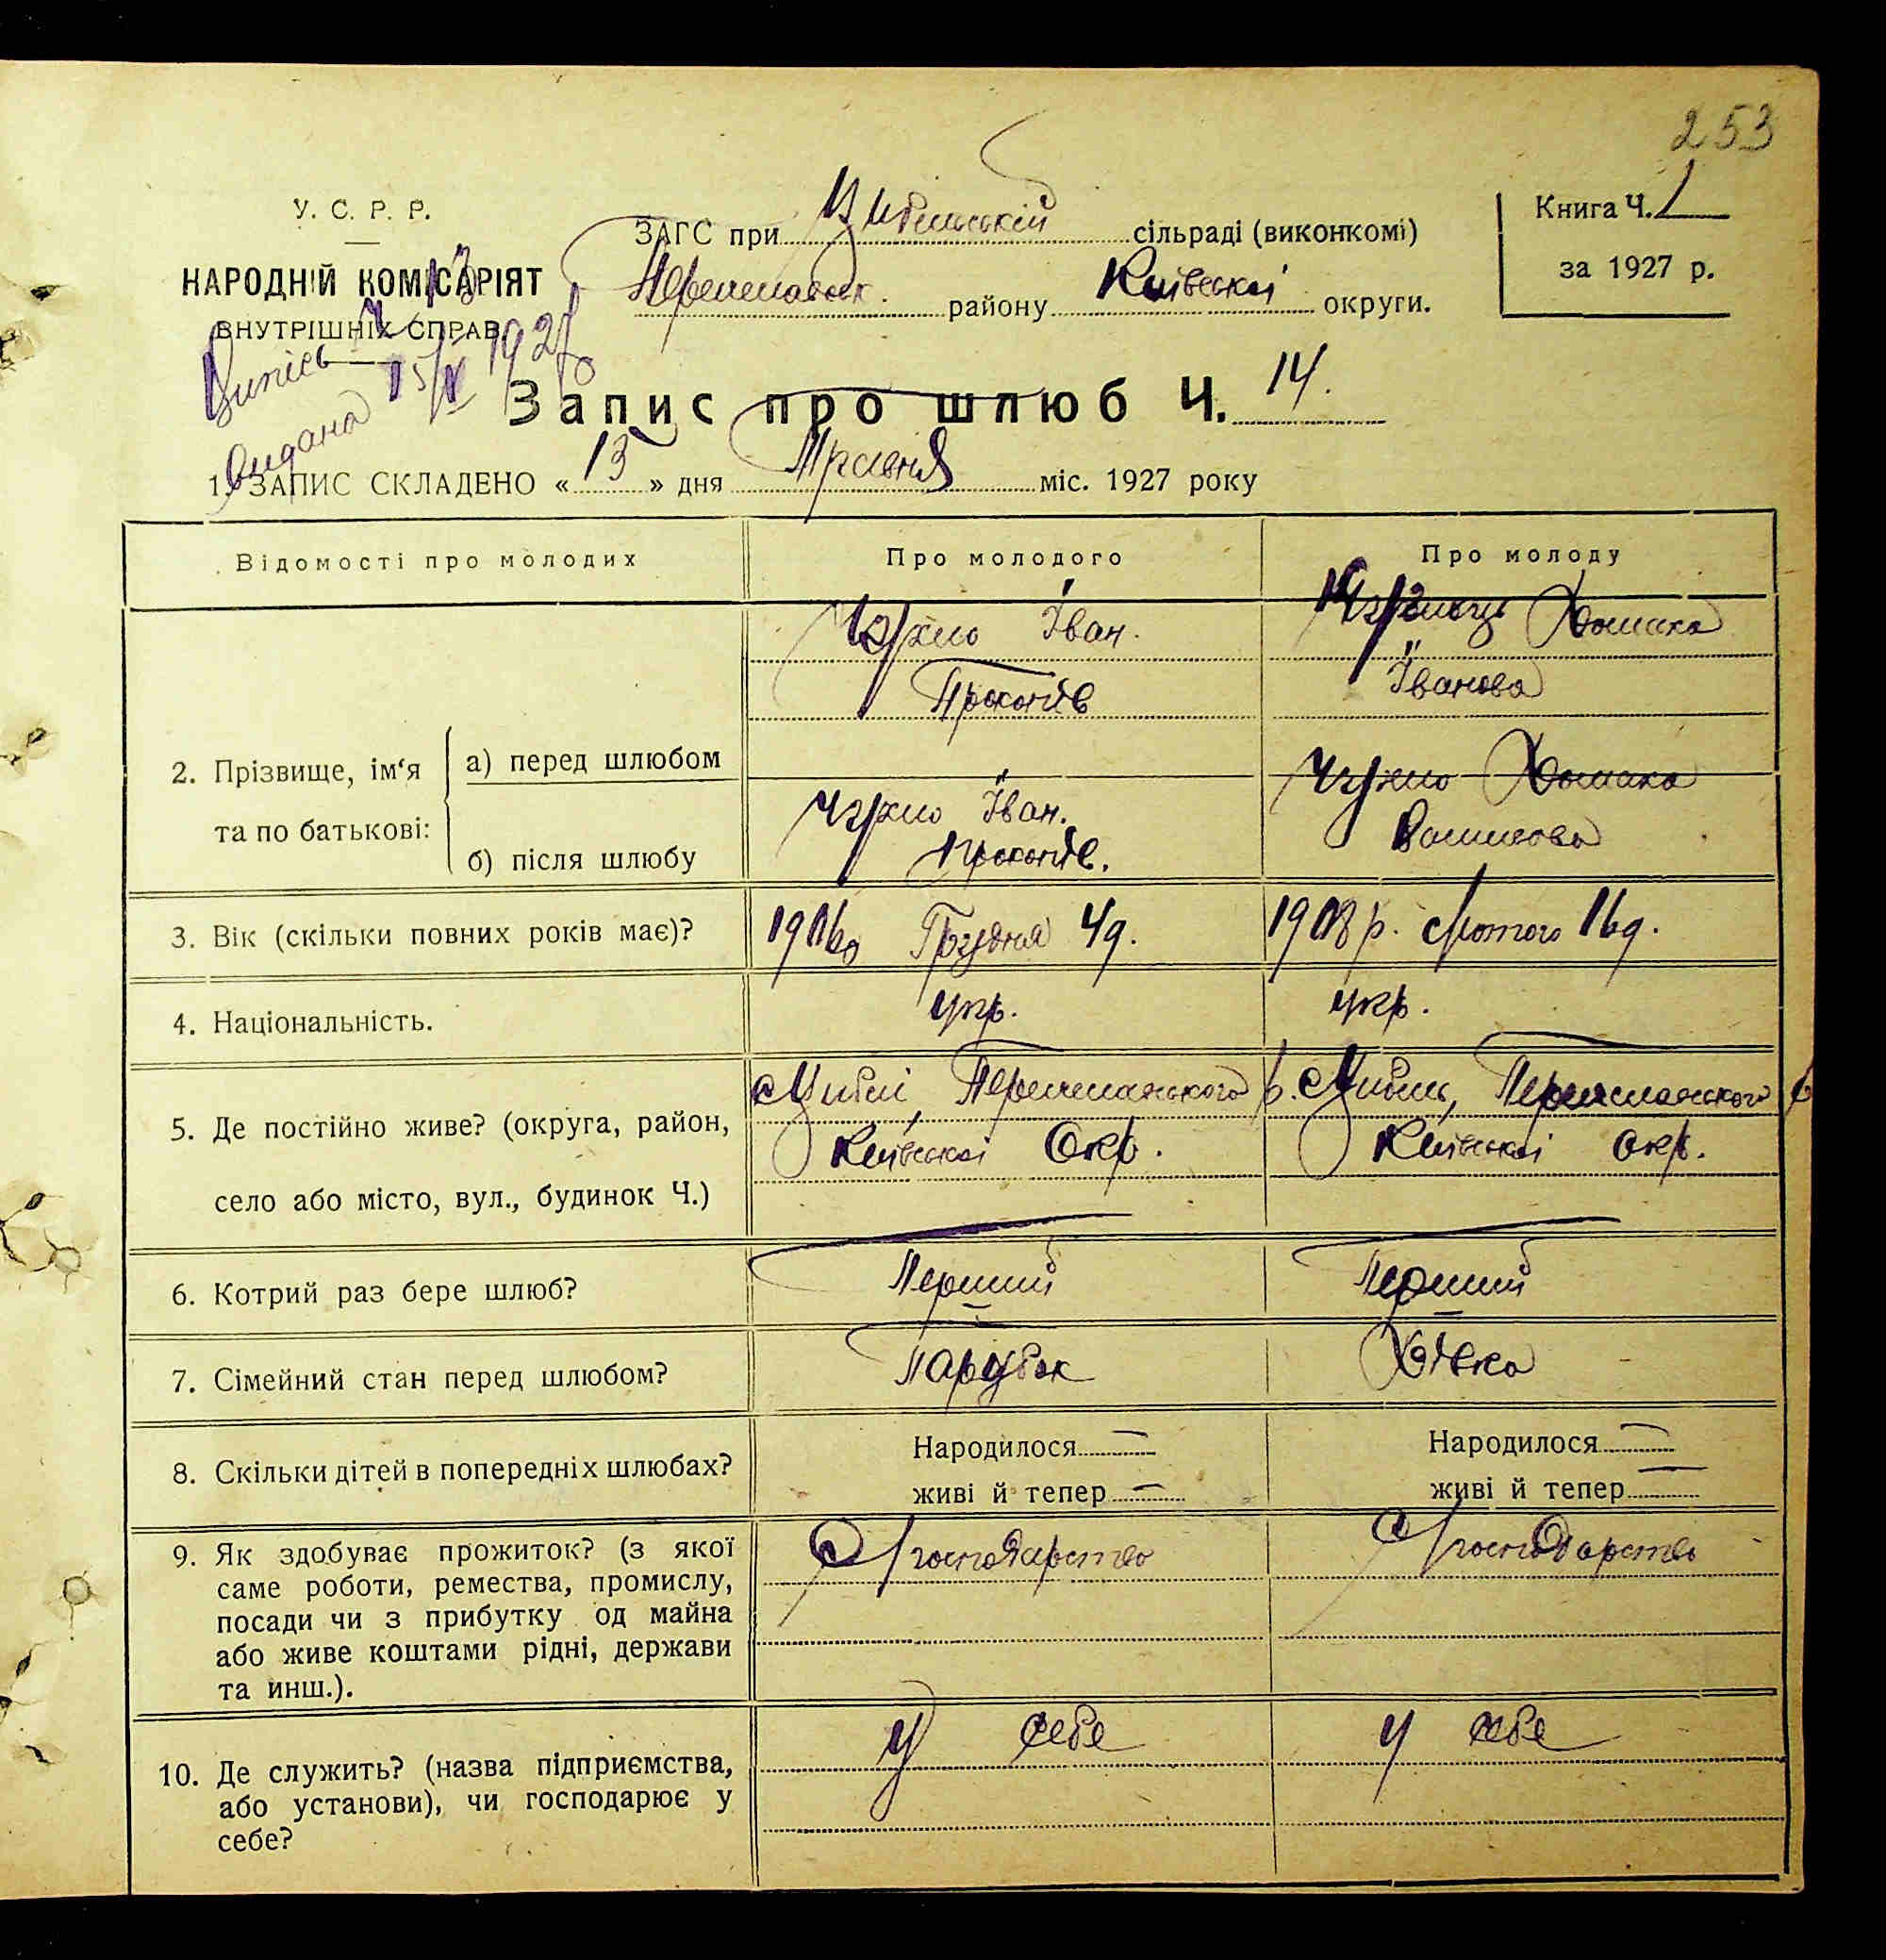 253
У. С. Р. Р.
НАРОДНІЙ КОМІСАРІЯТ
ВНУТРІШНІХ СПРАВ
ЗАГС при Цибельській сільраді (виконкомі)
Переяславськ. району Київської округи.
Книга Ч. 1
за 1927 р.
Випісь
видана 15/V 1927
Запис про шлюб Ч. 14.
1. ЗАПИС СКЛАДЕНО « 13 » дня Травня міс. 1927 року
Відомості про молодих Про молодого Про молоду
2. Прізвище, ім'я та по батькові:
а) перед шлюбом
Іван. Прокопів
Домика Іванова
б) після шлюбу
Іван. Прокопів.
Домика
3. Вік (скільки повних років має)? 1906р Грудня 4д. 1908 р. Лютого 16д.
4. Національність. укр. укр.
5. Де постійно живе? (округа, район, село або місто, вул., будинок Ч.)
с Циблі, Переяславського р. Київської Окр.
с Циблі, Переяславського р Київської Окр.
6. Котрий раз бере шлюб? Перший Перший
7. Сімейний стан перед шлюбом? Парубок Дівка
8. Скільки дітей в попередніх шлюбах?
Народилося — Народилося —
живі й тепер — живі й тепер —
9. Як здобуває прожиток? (з якої
саме роботи, ремества, промислу,
посади чи з прибутку од майна
або живе коштами рідні, держави
та инш.).
С/господарство С/господарство
10. Де служить? (назва підприємства,
або установи), чи господарює у
себе?
у себе у себе